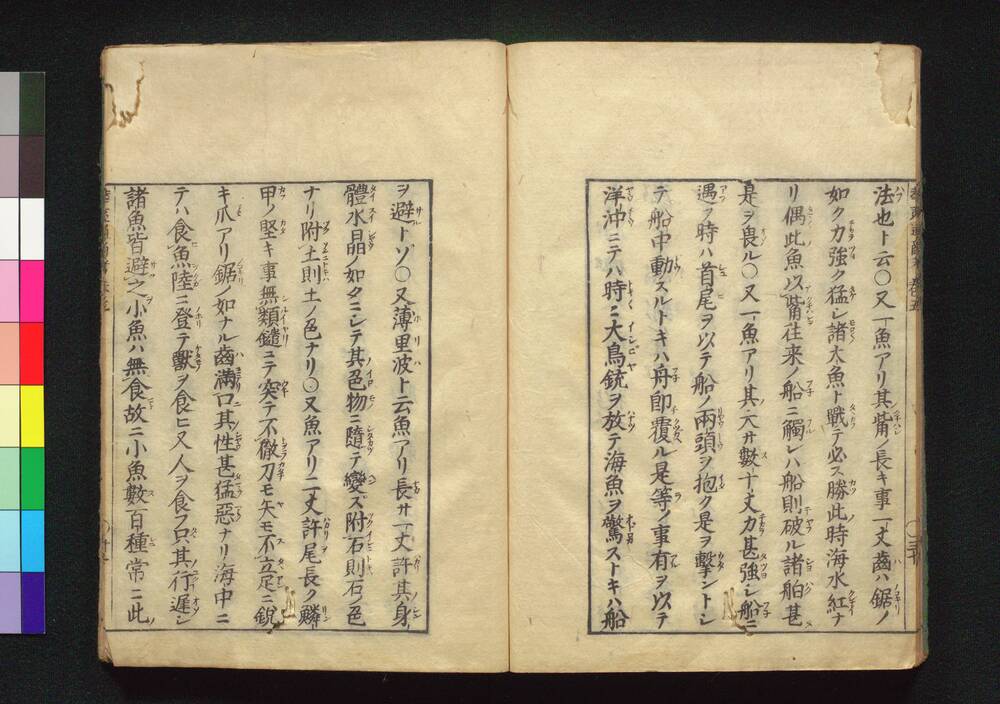 法也ト云〇又一魚アリ其觜ノ長キ事一丈齒ハ鋸ノ
如ク力強ク猛シ諸大魚ト戰テ必ス勝此時海水紅ナ
リ偶此魚以觜往来ノ船ニ觸レハ船則破ル諸舶甚
是ヲ畏ル〇又一魚アリ其大サ數十丈力甚強シ船ニ
遇フ時ハ首尾ヲ以テ船ノ兩頭ヲ抱ク是ヲ擊ントシ
テ船中動スルトキハ舟即覆ル是等ノ事有ヲ以テ
洋沖ニテハ時ニ大鳥銃ヲ放テ海魚ヲ驚ストキハ船
ヲ避トゾ〇又薄里波ト云魚アリ長サ一丈許其身
體水晶ノ如クニシテ其色物ニ隨テ變ズ附石則石ノ色
ナリ附土則土ノ色ナリ〇又魚アリ二丈許尾長ク鱗
甲ノ堅キ事無類鑓ニテ突テ不徹刀モ矢モ不立足ニ銳
キ爪アリ鋸ノ如ナル齒滿口其性甚猛惡ナリ海中ニ
テハ食魚陸ニ登テ獸ヲ食ヒ又人ヲ食フ只其行遲シ
諸魚皆避之小魚ハ無食故ニ小魚數百種常ニ此